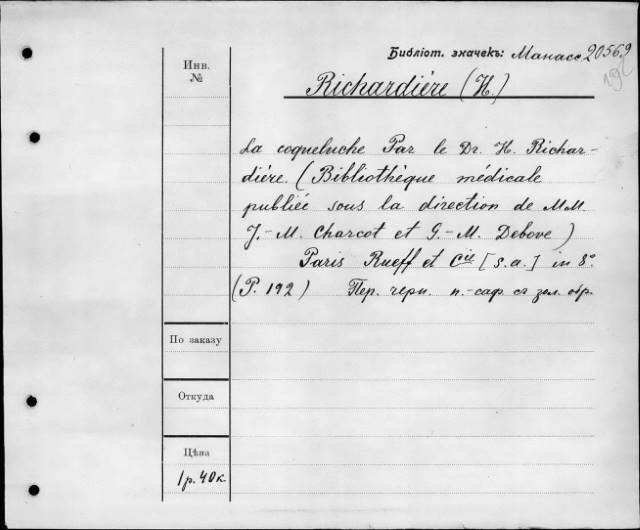 Библіот. значекъ: Манасс 20569
192
Инв.
№
Richardiére (H.)
La coqueluche Par le Dr. H. Richar-
diére. (Bibliothèque médicale
publiée sous la direction de MM.
J.-M. Charcot et G.-M. Debove)
Paris Rueff et Cie [s.a.] in 8°
(P. 192) Пер. черн. п.-саф. съ зел. обр.
По заказу
Откуда
Цѣна
1 р. 40 к